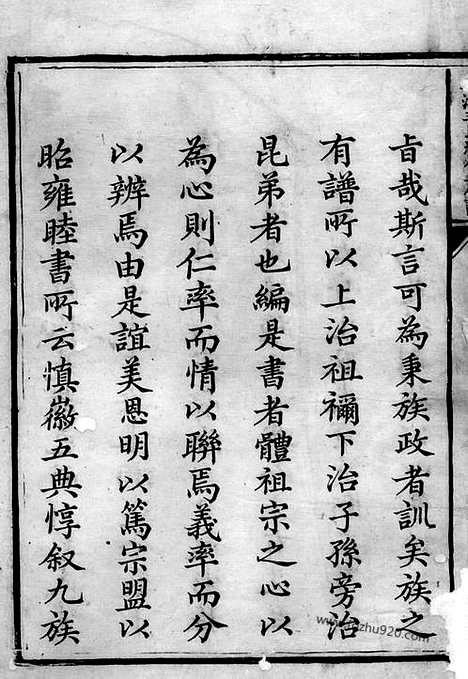 旨哉斯言可為秉族政者訓矣族之
有譜所以上治祖禰下治子孫旁治
昆弟者也編是書者體祖宗之心以
為心則仁率而情以聯焉義率而分
以辨焉由是誼美恩明以篤宗盟以
昭雍睦書所云慎徽五典惇叙九族
www.gzhu920.com